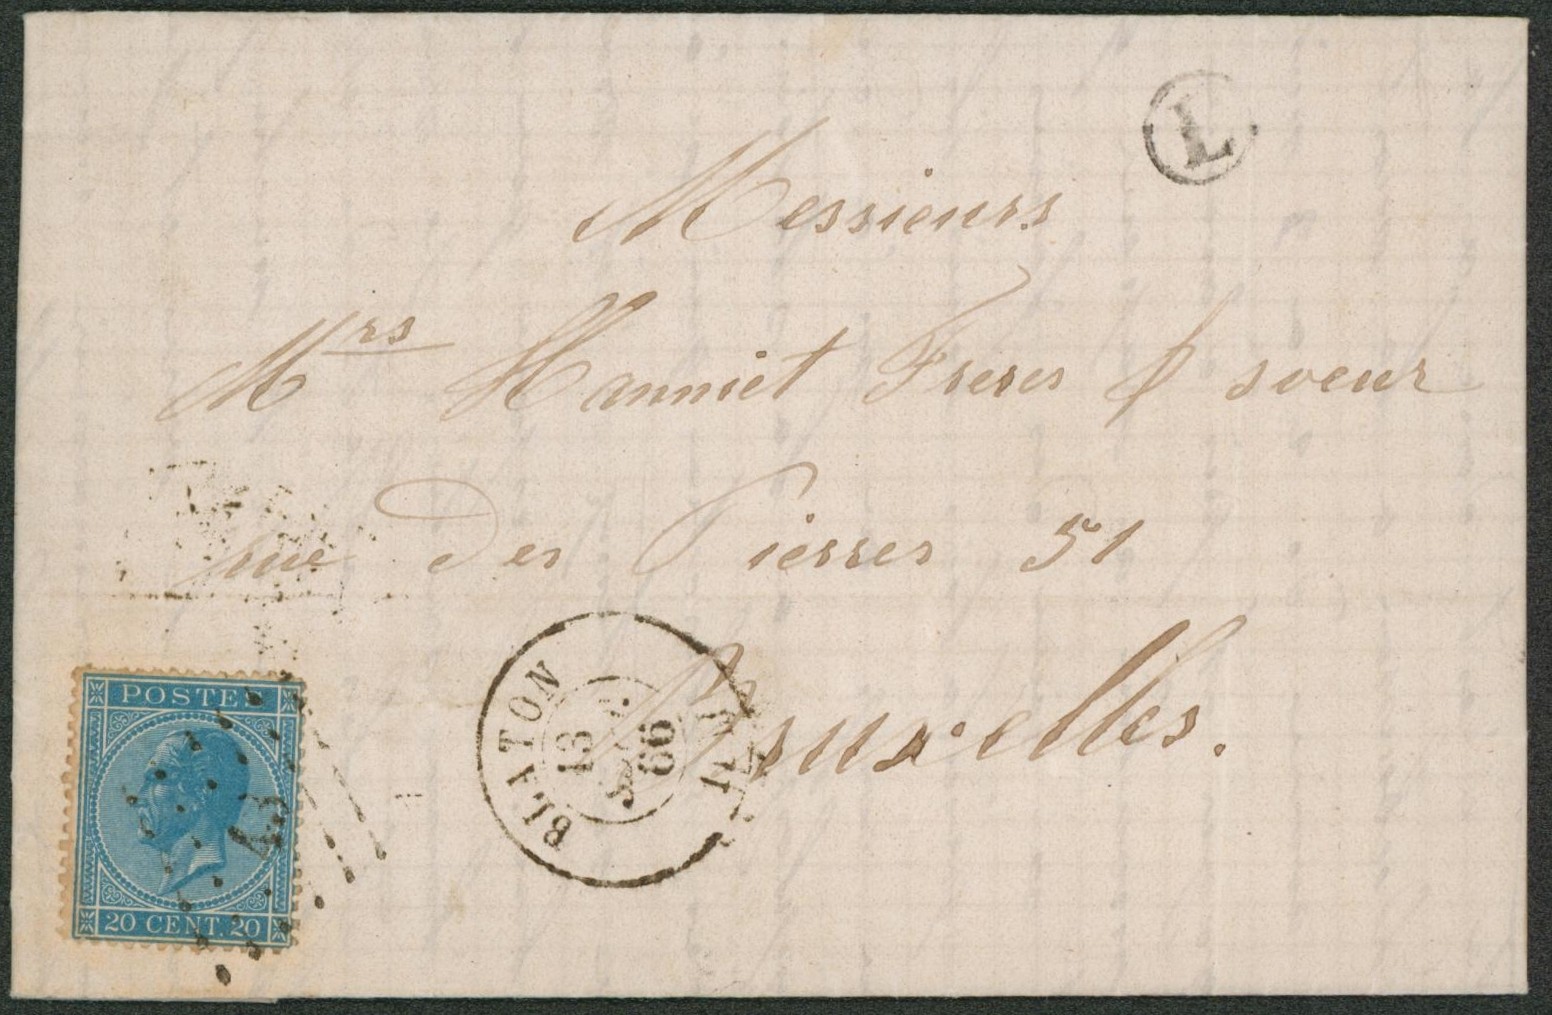 L
Messieurs
Mrs Hanniet Freres & soeur
rue des Pierres 51
Bruxelles.
BLATON
13
66
POSTES
20 CENT. 20